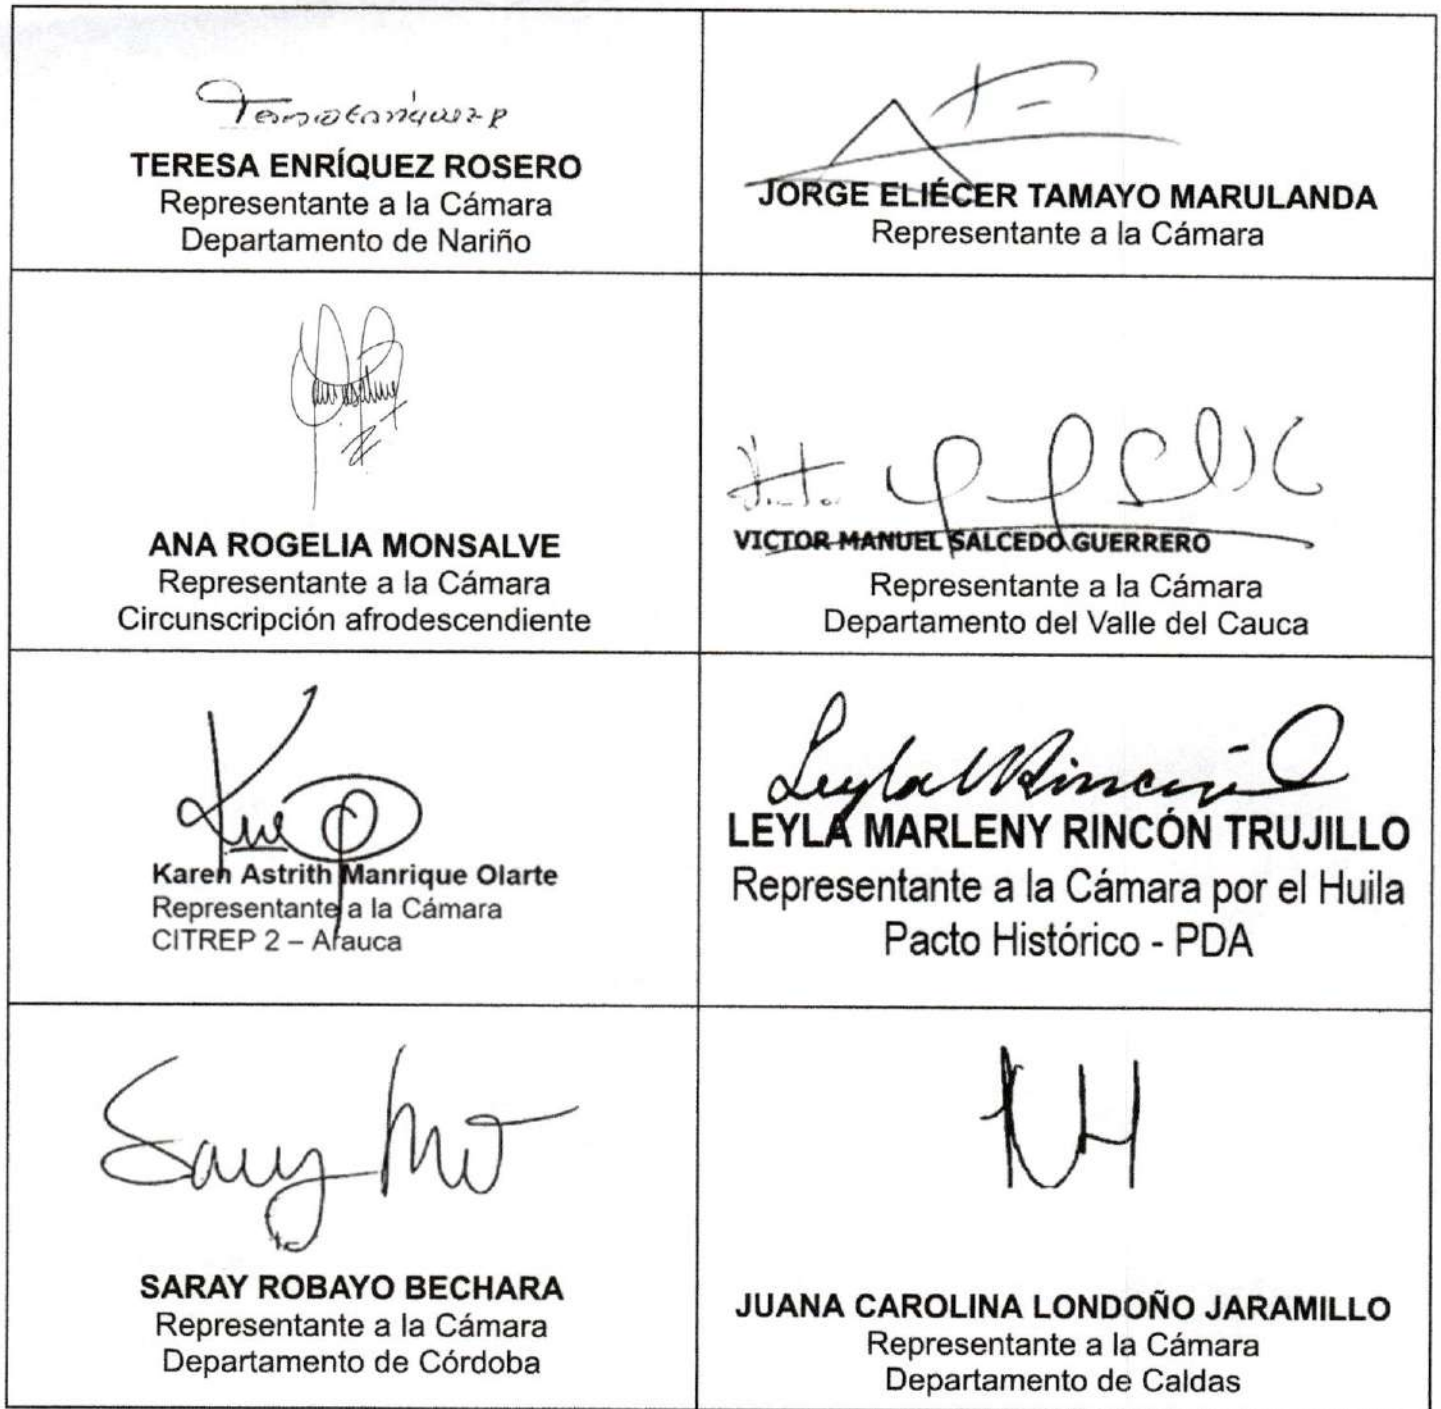 TERESA ENRÍQUEZ ROSERO
Representante a la Cámara
Departamento de Nariño
JORGE ELIÉCER TAMAYO MARULANDA
Representante a la Cámara
ANA ROGELIA MONSALVE
Representante a la Cámara
Circunscripción afrodescendiente
Victor
VICTOR MANUEL SALCEDO GUERRERO
Representante a la Cámara
Departamento del Valle del Cauca
Karen Astrith Manrique Olarte
Representante a la Cámara
CITREP 2 – Arauca
Leyla M Rincón
LEYLA MARLENY RINCÓN TRUJILLO
Representante a la Cámara por el Huila
Pacto Histórico - PDA
Saray
SARAY ROBAYO BECHARA
Representante a la Cámara
Departamento de Córdoba
JUANA CAROLINA LONDOÑO JARAMILLO
Representante a la Cámara
Departamento de Caldas